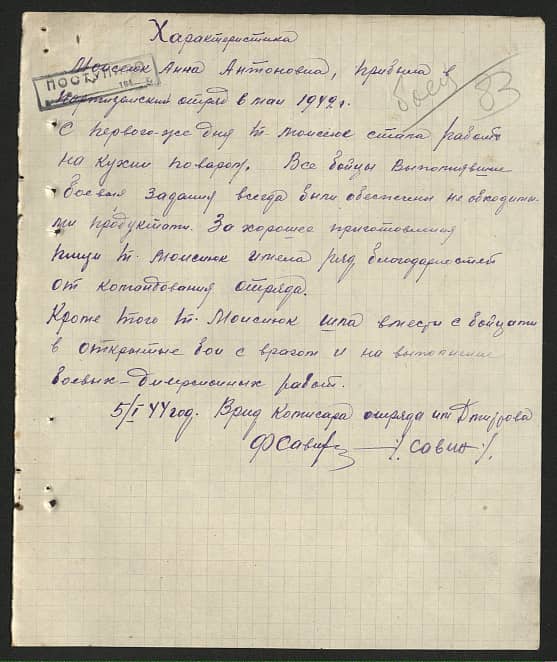 Характеристика
ПОСТУПИЛО
194
Моисеюк Анна Антоновна, прибыла в
боев
83
партизанский отряд в мае 1942 г.
С первого-же дня т. Моисеюк стала работать
на кухни поваром. Все бойцы выполнявшие
боевые задания всегда были обеспечены не обходимы-
ми продуктами. За хорошее приготовления
пищи т. Моисиюк имела ряд благодарностей
от командования отряда.
Кроме того т. Моисиюк шла вмести с бойцами
в открытые бои с врагом и на выполнение
боевых-диверсионных работ.
5/I 44 год. Врид Комисара отряда им Дмитрова
ФСавин /. Савин ./.